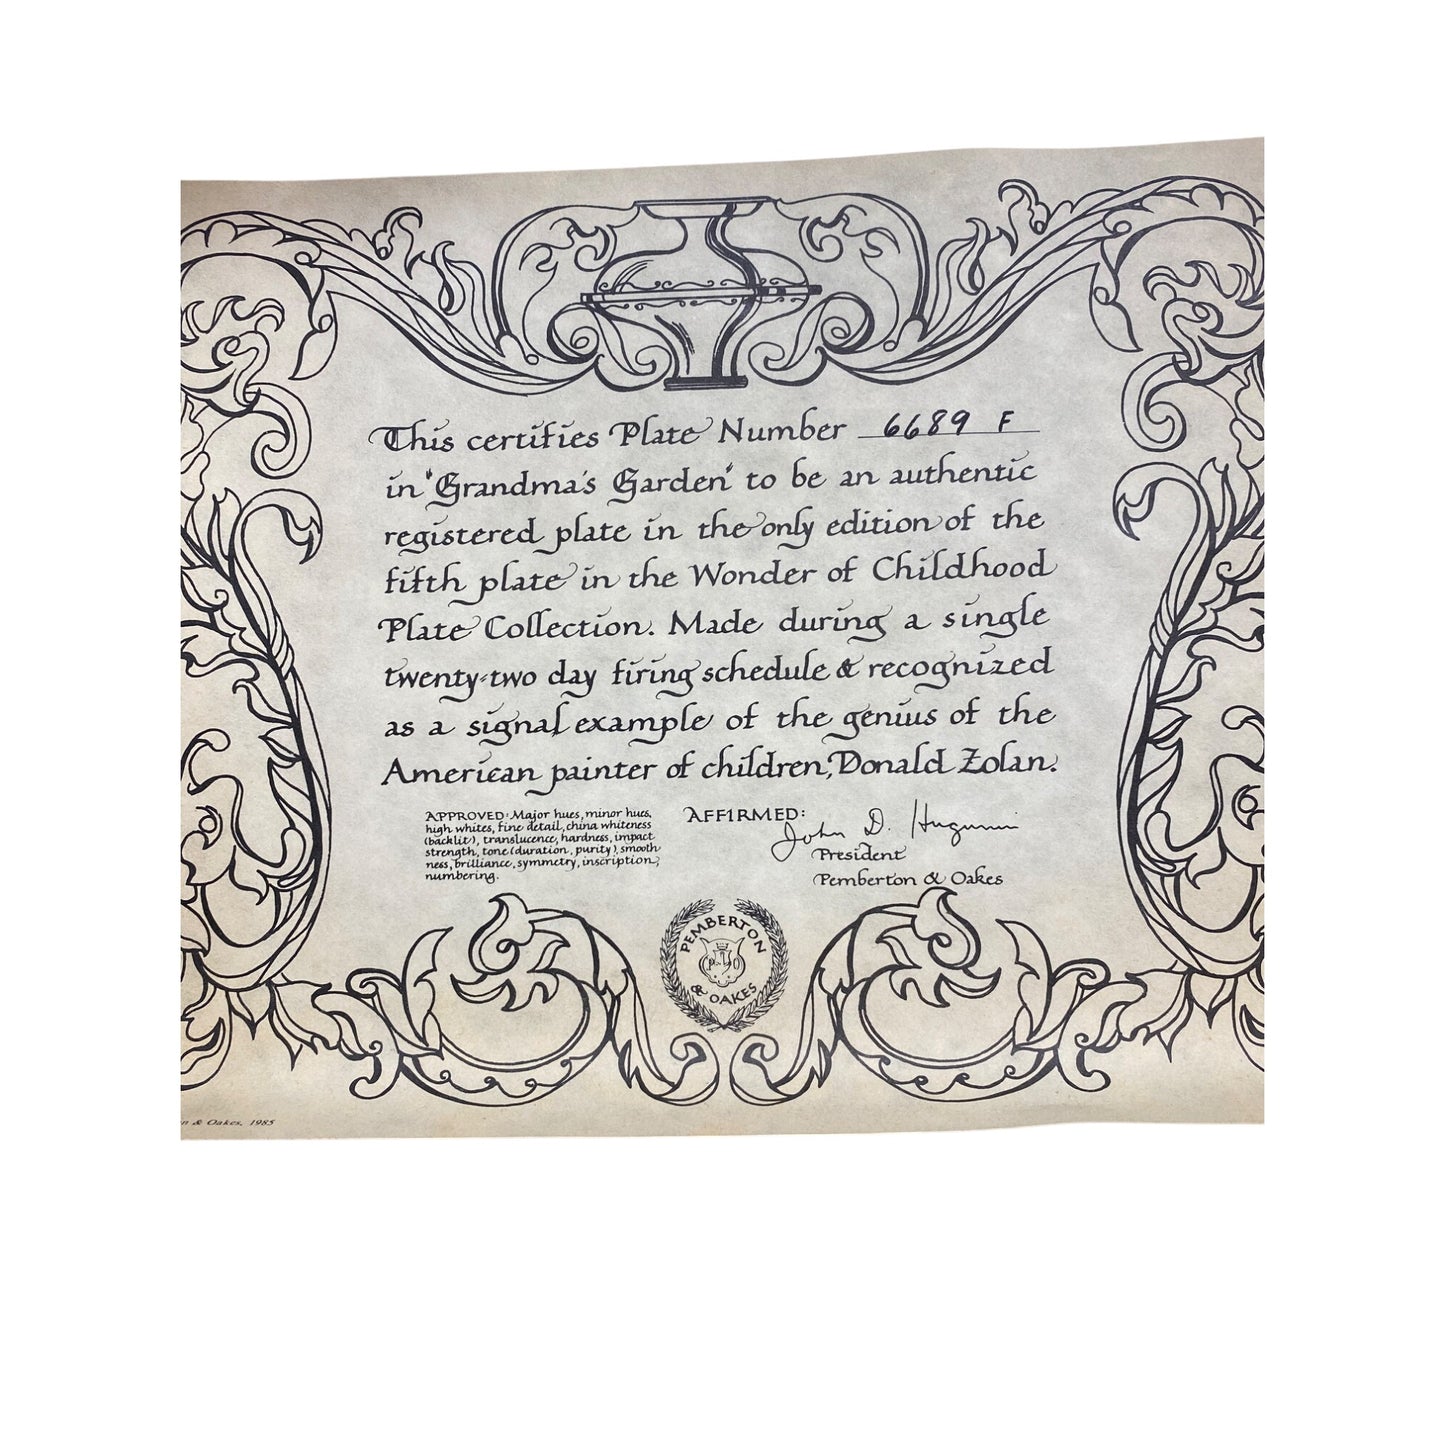 This certifies Plate Number 6689 F
in "Grandma's Garden" to be an authentic
registered plate in the only edition of the
fifth plate in the Wonder of Childhood
Plate Collection. Made during a single
twenty-two day firing schedule & recognized
as a signal example of the genius of the
American painter of children, Donald Zolan.
APPROVED: Major hues, minor hues,
high whites, fine detail, china whiteness
(backlit), translucence, hardness, impact
strength, tone (duration, purity), smooth
ness, brilliance, symmetry, inscription,
numbering.
AFFIRMED:
John D. Hugunin
President
Pemberton & Oakes
PEMBERTON
P&O
& OAKES
n & Oakes, 1985